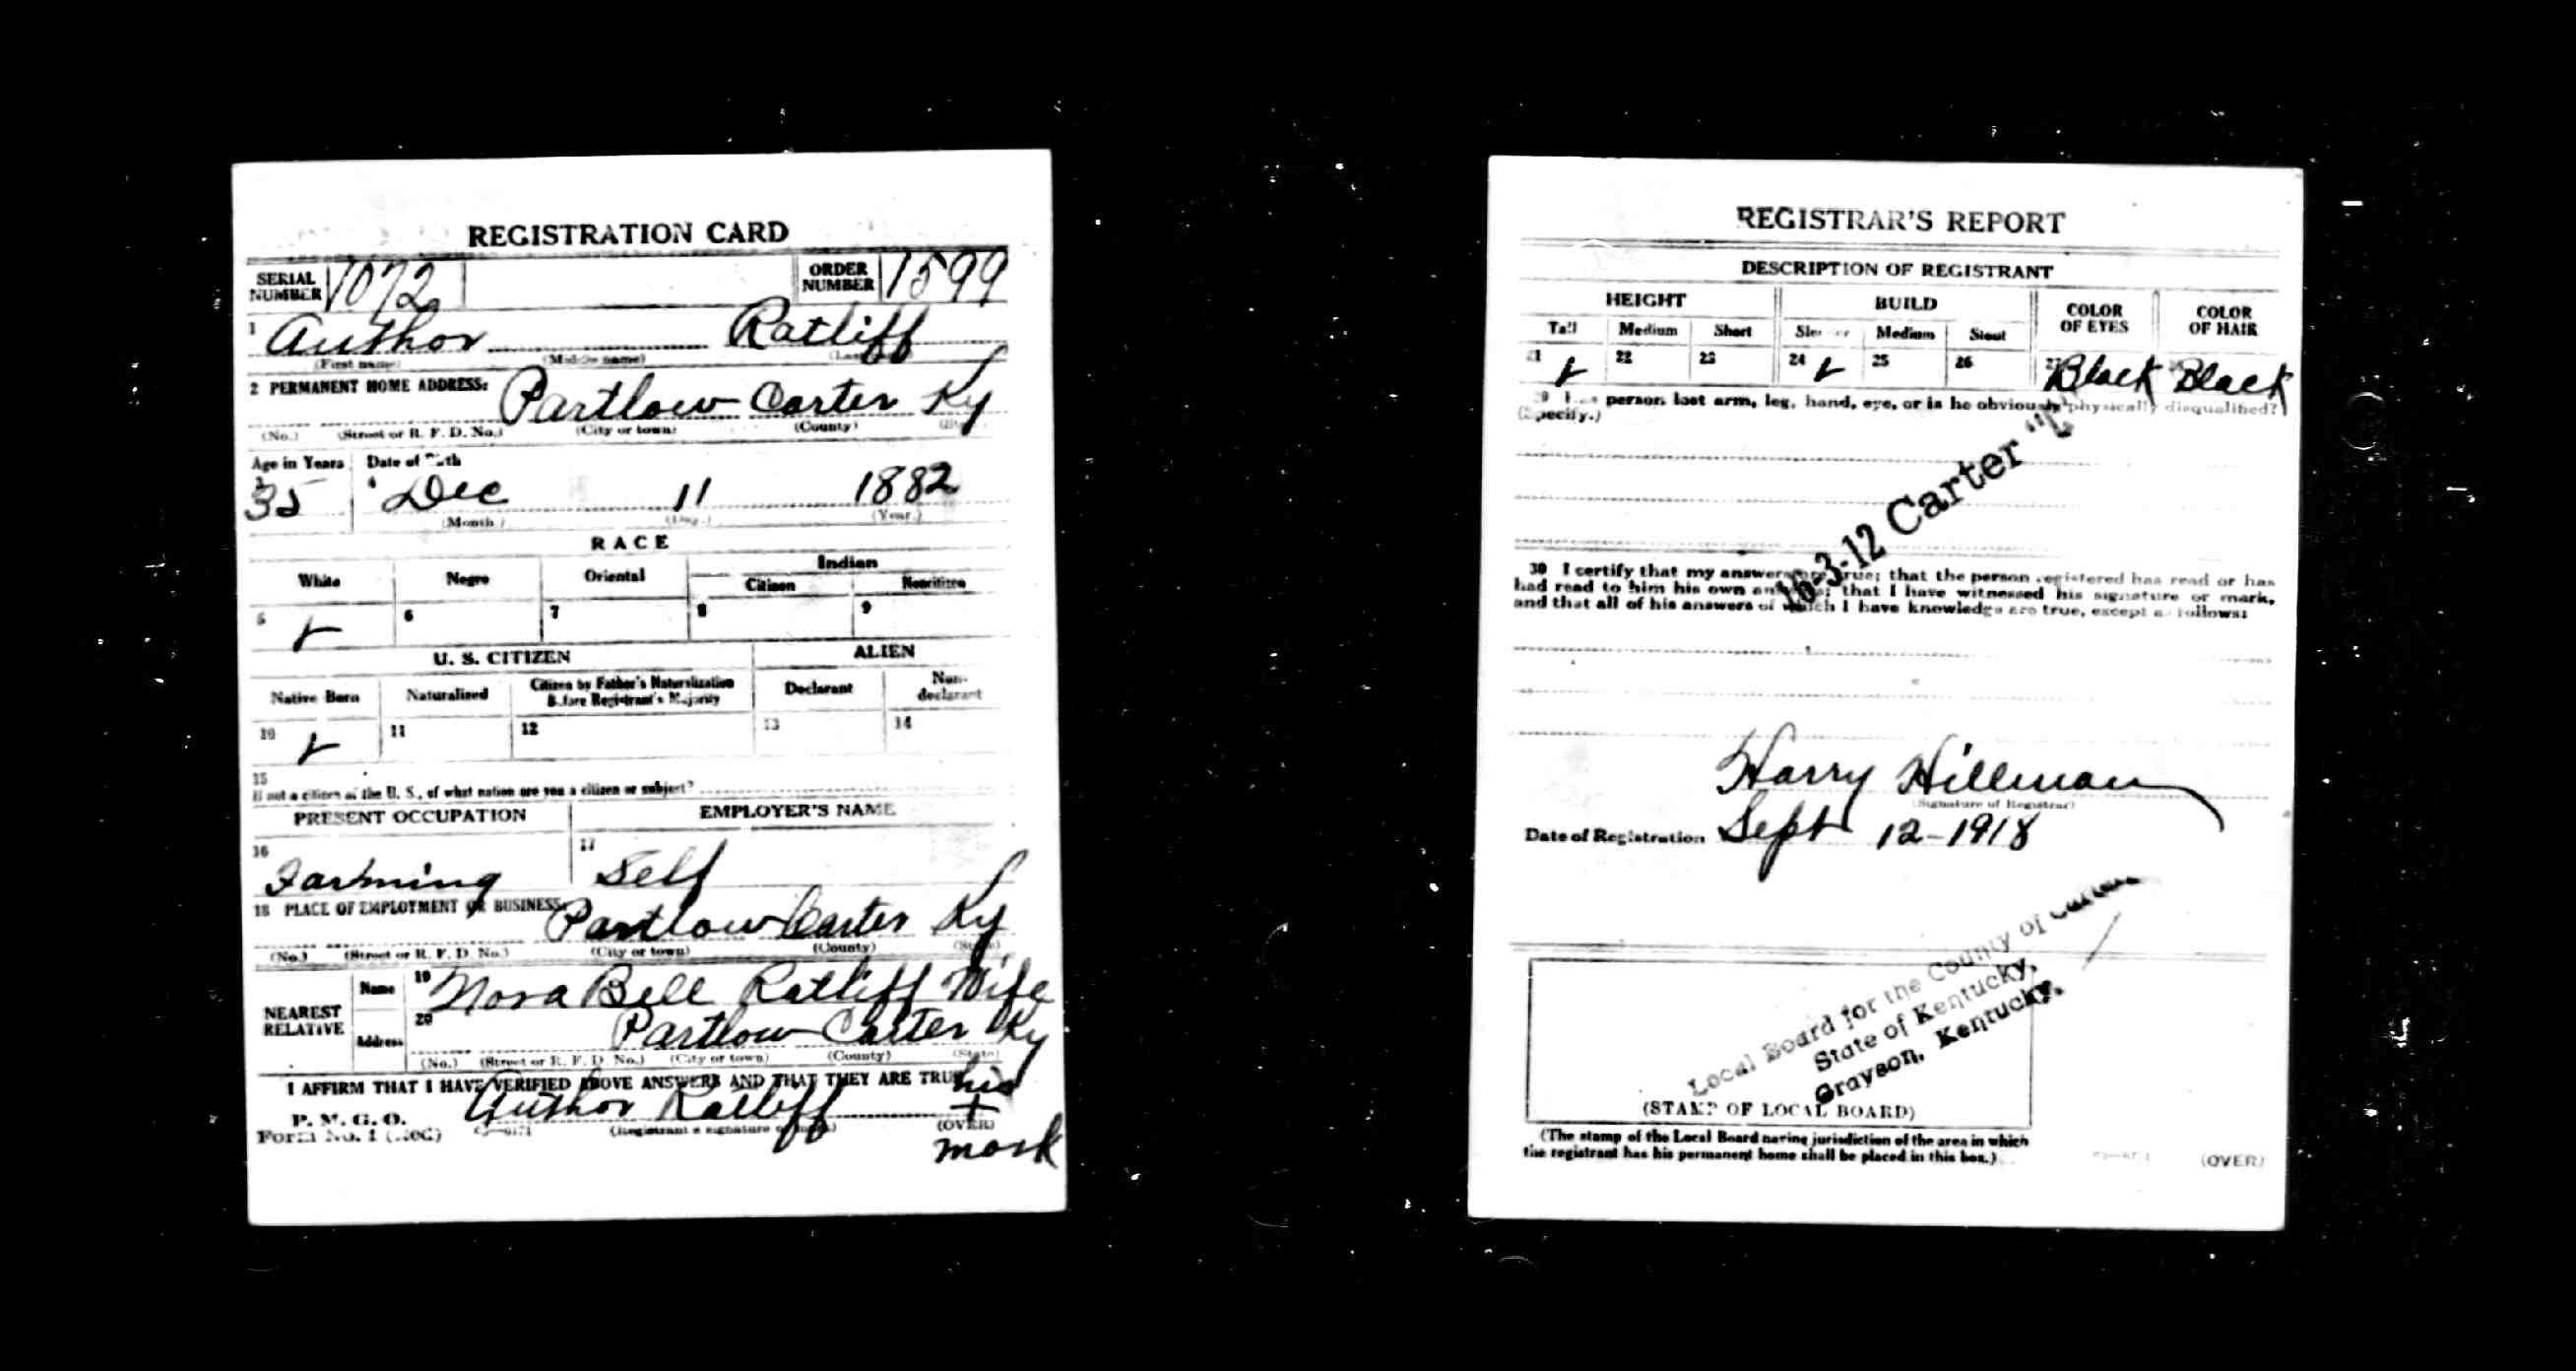 REGISTRATION CARD
SERIAL NUMBER 1072 ORDER NUMBER 1599
1 Author Ratliff
(First name) (Middle name) (Last name)
2 PERMANENT HOME ADDRESS:
Partlow Carter Ky
(No.) (Street or R. F. D. No.) (City or town) (County) (State)
Age in Years Date of Birth
3 35 4 Dec 11 1882
(Month) (Day) (Year)
RACE
White Negro Oriental Indian
Citizen Noncitizen
5 ✓ 6 7 8 9
U. S. CITIZEN ALIEN
Native Born Naturalized Citizen by Father's Naturalization Before Registrant's Majority Declarant Non-declarant
10 ✓ 11 12 13 14
15
If not a citizen of the U. S., of what nation are you a citizen or subject?
PRESENT OCCUPATION EMPLOYER'S NAME
16 Farming 17 Self
18 PLACE OF EMPLOYMENT OR BUSINESS:
Partlow Carter Ky
(No.) (Street or R. F. D. No.) (City or town) (County) (State)
NEAREST RELATIVE Name 19 Nora Bell Ratliff Wife
Address 20 Partlow Carter Ky
(No.) (Street or R. F. D. No.) (City or town) (County) (State)
I AFFIRM THAT I HAVE VERIFIED ABOVE ANSWERS AND THAT THEY ARE TRUE
his
P. M. G. O. Author Ratliff +
Form No. 1 (Red) (Registrant's signature or mark) (OVER)
mark
REGISTRAR'S REPORT
DESCRIPTION OF REGISTRANT
HEIGHT BUILD COLOR OF EYES COLOR OF HAIR
Tall Medium Short Slender Medium Stout
21 ✓ 22 23 24 ✓ 25 26 27 Black 28 Black
29 Has person lost arm, leg, hand, eye, or is he obviously physically disqualified?
(Specify.)
16-3-12 Carter
30 I certify that my answers are true; that the person registered has read or has
had read to him his own answers; that I have witnessed his signature or mark,
and that all of his answers of which I have knowledge are true, except as follows:
Harry Hillman
(Signature of Registrar)
Date of Registration Sept 12-1918
Local Board for the County of Carter
State of Kentucky,
Grayson, Kentucky.
(STAMP OF LOCAL BOARD)
(The stamp of the Local Board having jurisdiction of the area in which
the registrant has his permanent home shall be placed in this box.)
(OVER)